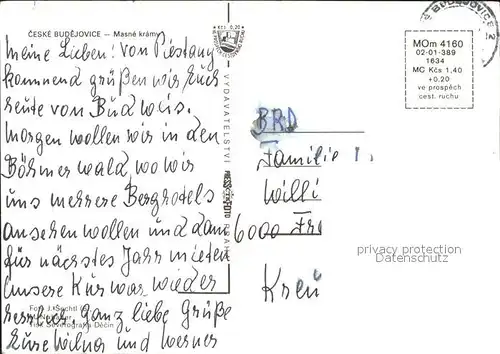 ČESKÉ BUDĚJOVICE — Masné krámy
Meine Lieben! Von Piestany
kommend grüßen wir Euch
heute von Budweis.
Morgen wollen wir in den
Böhmerwald, wo wir
uns mehrere Berghotels
ansehen wollen und dann
für nächstes Jahr mieten
Unsere Kur war wieder
herrlich. Ganz liebe Grüße
Eure Wilner und Werner
Foto J. Šechtl
Tisk Severografia Děčín
Kčs 0,20
VYDAVATELSTVÍ
PRESSFOTO
PRAHA
BUDĚJOVICE 2
MOm 4160
02-01-389
1634
MC Kčs 1,40
+0.20
ve prospěch
cest. ruchu
BRD
Familie
Willi
6000
Kreu
privacy protection
Datenschutz